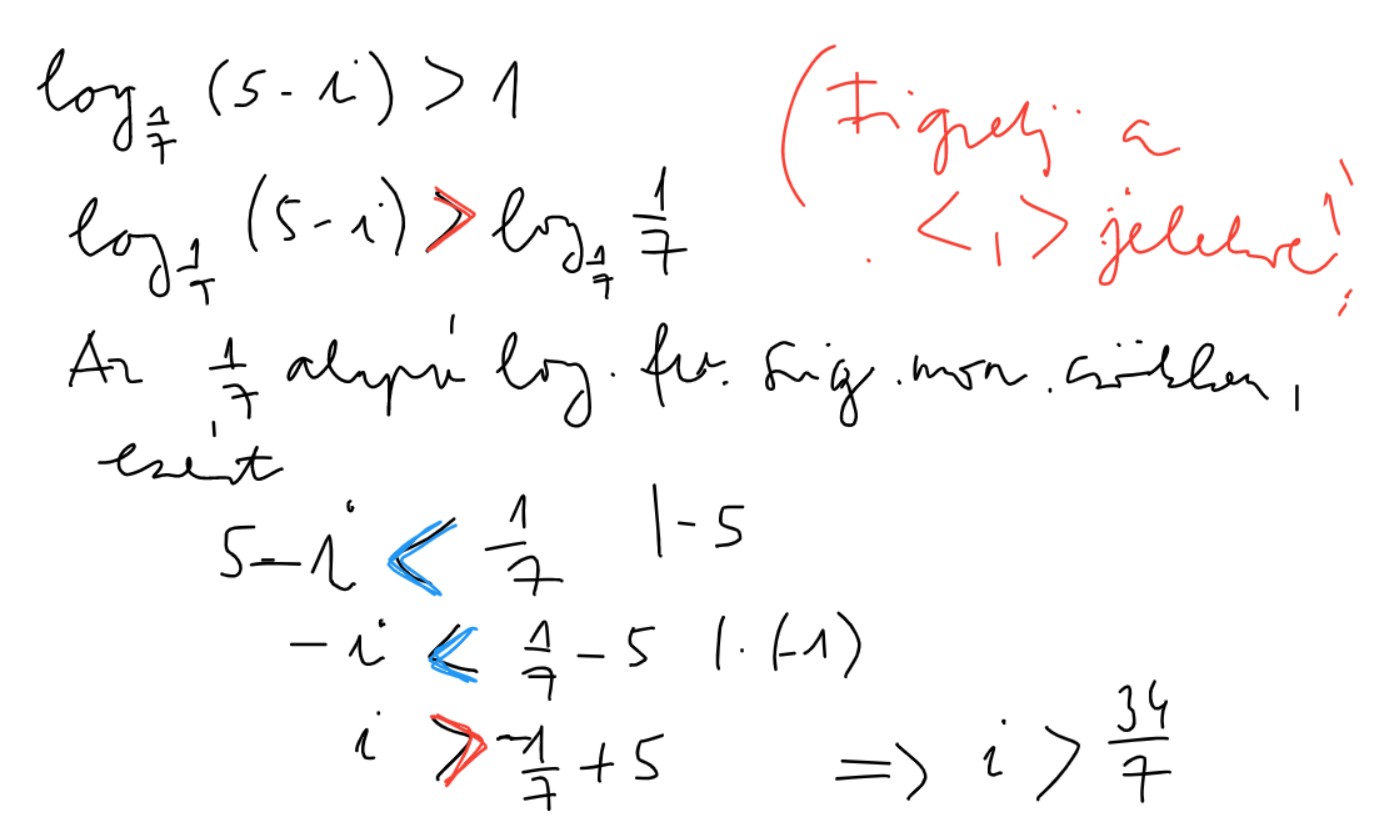 log_{1/7} (5-i) > 1
(Figyelj a
<, > jelekre!
log_{1/7} (5-i) > log_{1/7} 1/7
Az 1/7 alapú log. fv. szig. mon. csökken,
ezért
5-i < 1/7 |-5
-i < 1/7 - 5 |·(-1)
i > -1/7 + 5 => i > 34/7